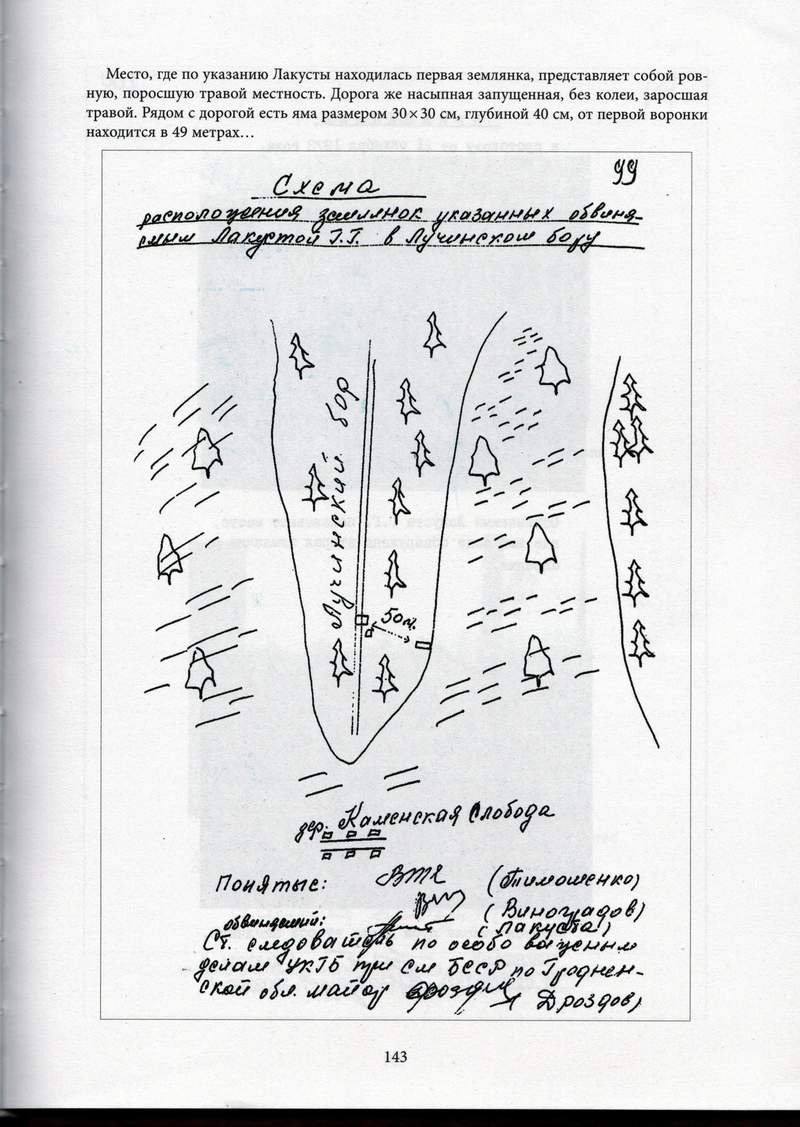 Место, где по указанию Лакусты находилась первая землянка, представляет собой ров-
ную, поросшую травой местность. Дорога же насыпная запущенная, без колеи, заросшая
травой. Рядом с дорогой есть яма размером 30×30 см, глубиной 40 см, от первой воронки
находится в 49 метрах…
99
Схема
расположения землянок указанных обвиня-
емым Лакустой Г.Г. в Лучинском бору
Лучинский бор
50м.
дер. Каменская Слобода
Понятые: (Тимошенко)
(Виноградов)
обвиняемый: (Лакуста)
Ст. следователь по особо важным
делам УКГБ при См БССР по Гроднен-
ской обл. майор Дроздов)
143